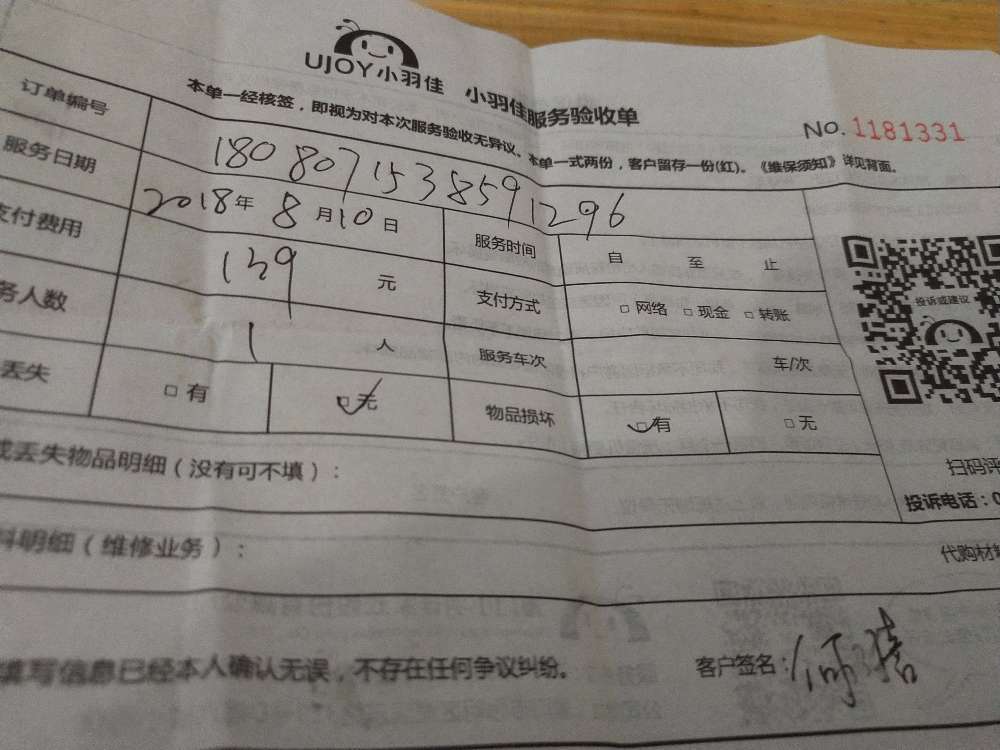 UJOY小羽佳 小羽佳服务验收单
本单一经核签，即视为对本次服务验收无异议。本单一式两份，客户留存一份(红)。《维保须知》详见背面。
No. 1181331
订单编号 1808071538591296
服务日期 2018年 8月10日 服务时间 自 至 止
支付费用 139 元 支付方式 □网络 □现金 □转账
务人数 1 人 服务车次 车/次
丢失 □有 □无 物品损坏 □有 □无
投诉或建议
扫码评
丢失物品明细（没有可不填）：
投诉电话：0
料明细（维修业务）：
代购材
填写信息已经本人确认无误，不存在任何争议纠纷。 客户签名：